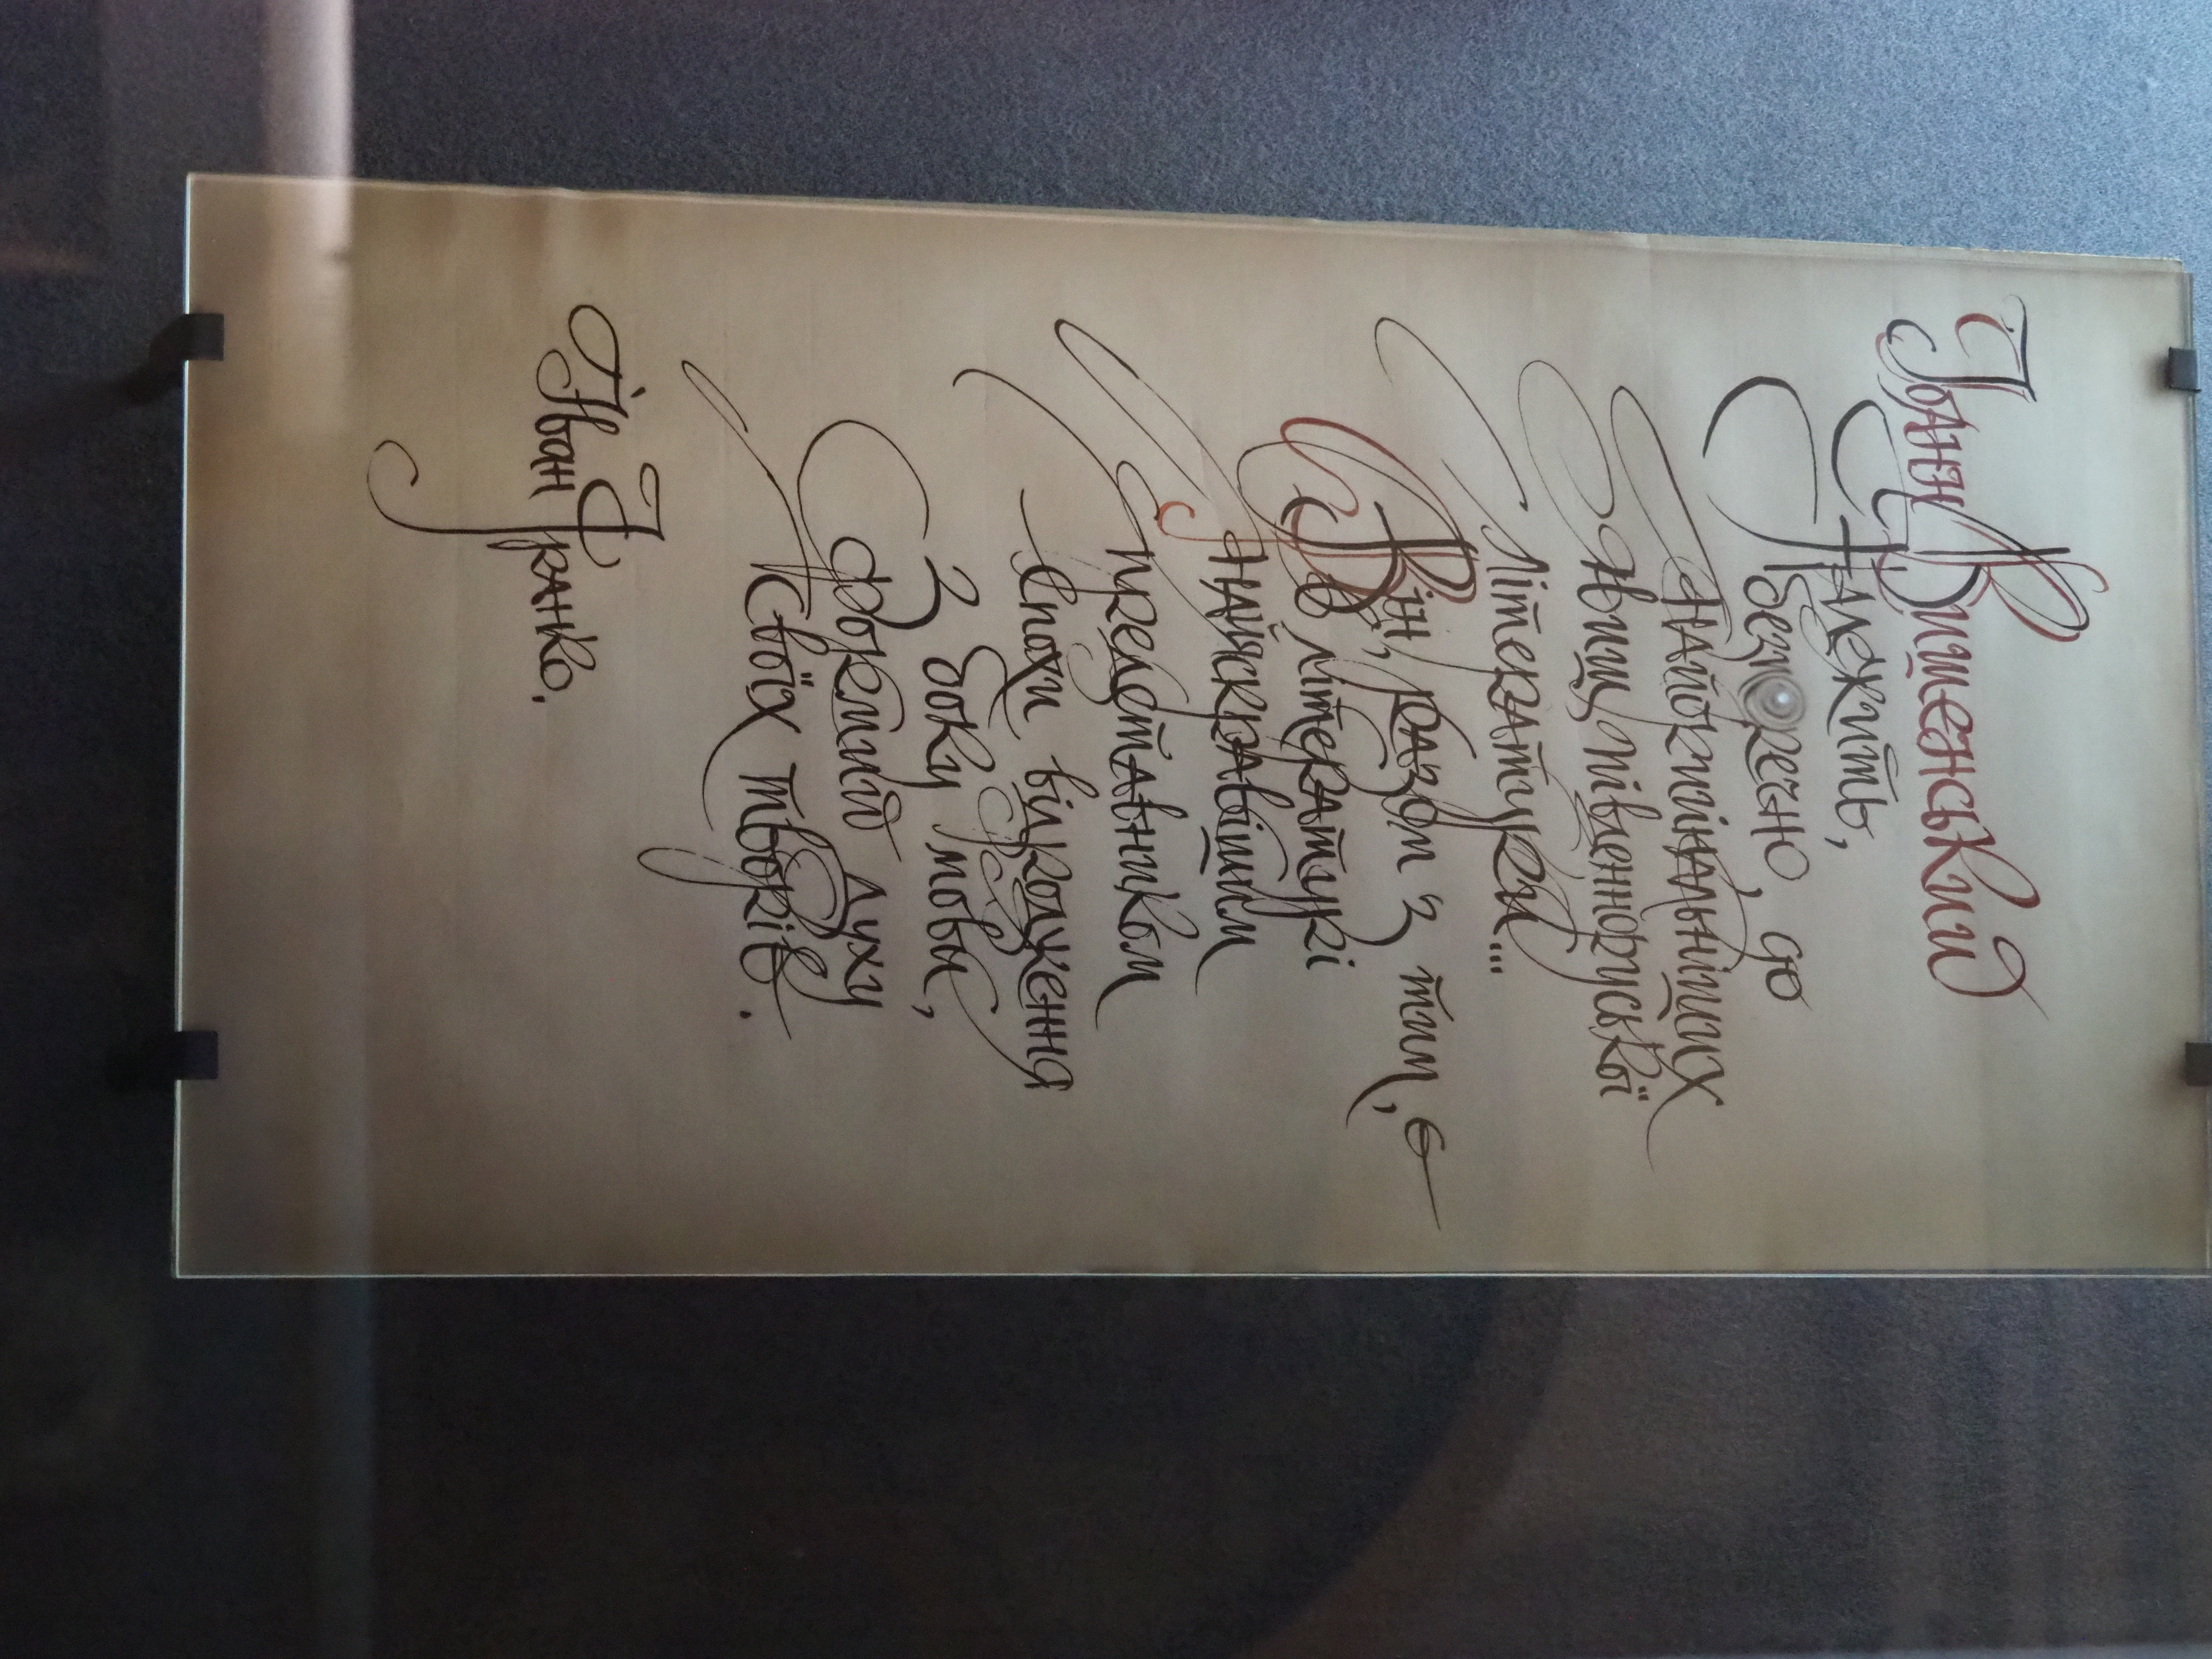 Іоанн Вишенський
Належить,
безперечно, до
найоригінальніших
явищ південноруської
літератури...
Він, разом з тим, є
в літературі
найяскравішим
представником
епохи відродження
з боку мови,
форми й духу
своїх творів.
Іван Франко.